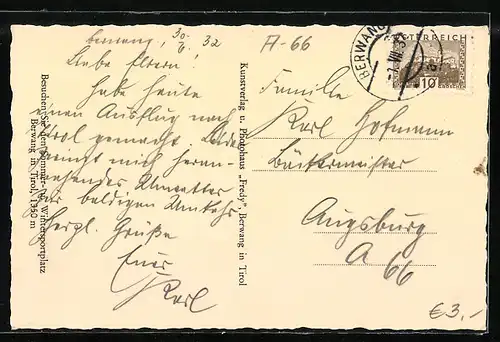 Berwang, 30. 6. 32
A-66
Liebe Eltern!
Habe heute
einen Ausflug nach
Tirol gemacht. Leider
zwingt mich heran-
nahendes Unwetter
zur baldigen Umkehr.
Herzl. Grüße
Euer
Karl
Besuchen Sie den Sommer- u. Wintersportplatz
Berwang in Tirol, 1350 m
Kunstverlag u. Photohaus „Fredy“, Berwang in Tirol
BERWANG
ÖSTERREICH
10
Familie
Karl Hofmann
Bäckermeister
Augsburg
A 66
€ 3,-